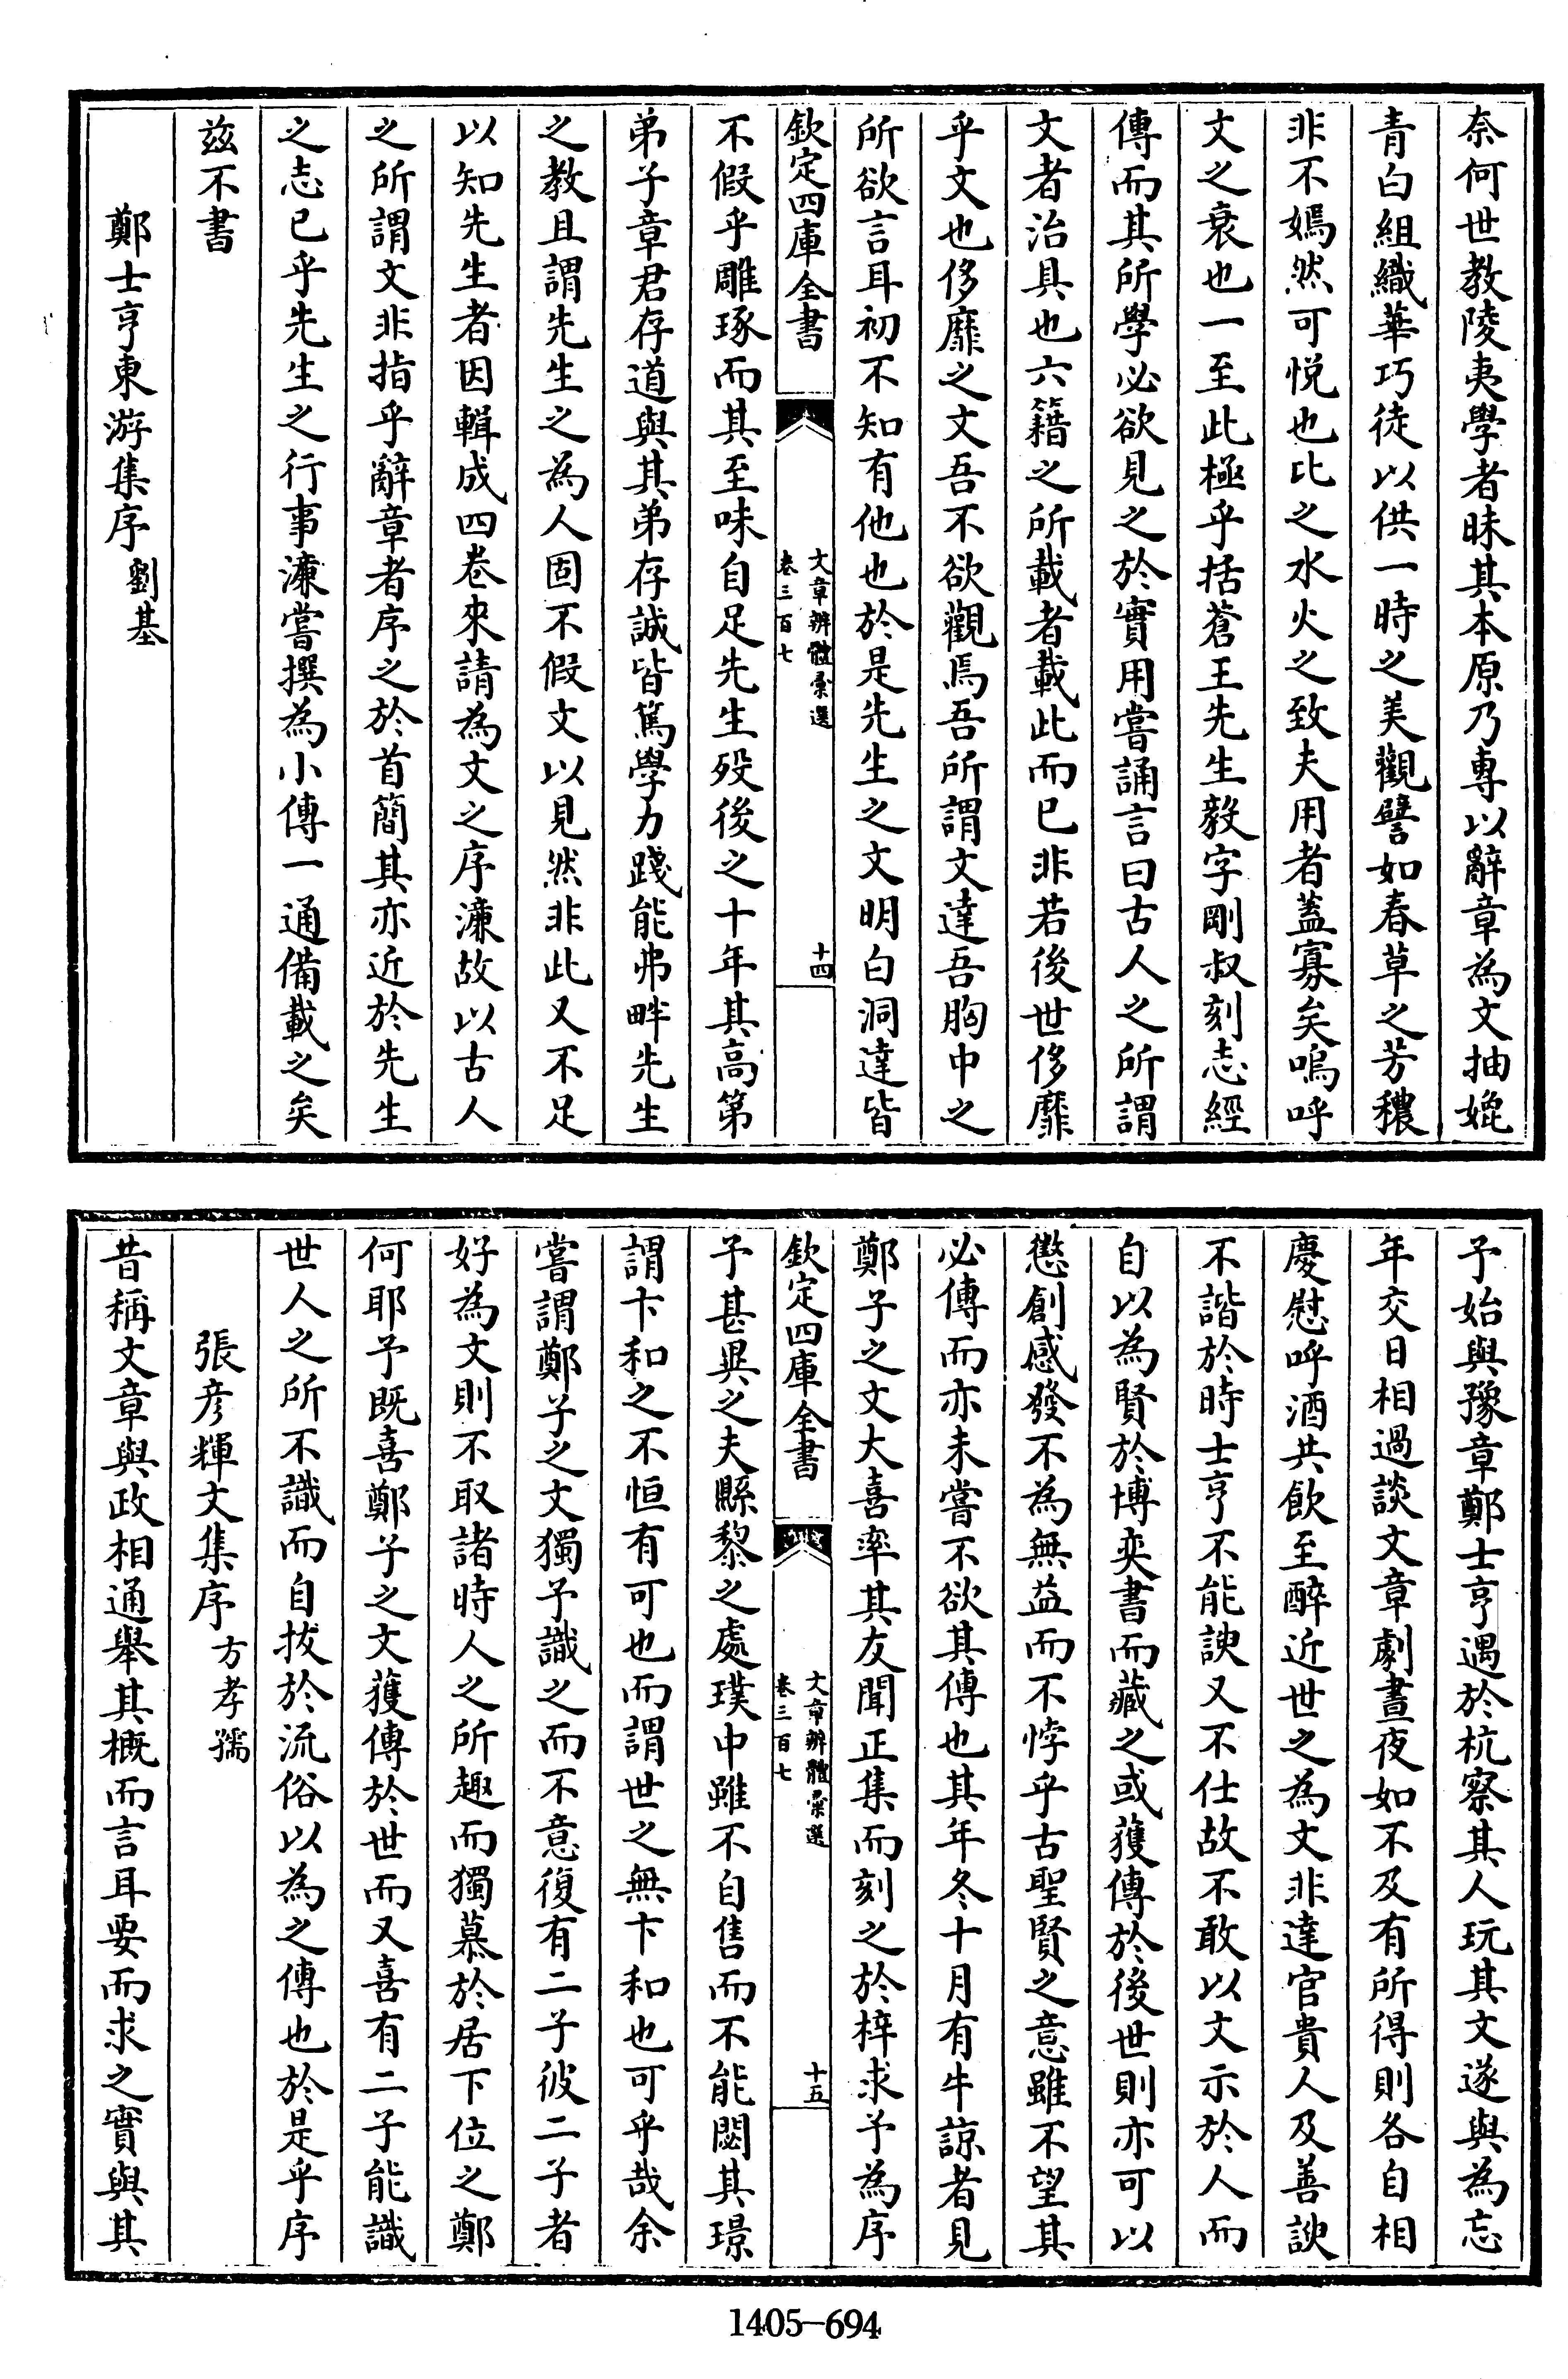 奈何世教陵夷學者昧其本原乃專以辭章為文抽媲
青白組織華巧徒以供一時之美觀譬如春草之芳穠
非不嫣然可悅也比之水火之致夫用者蓋寡矣嗚呼
文之衰也一至此極乎括蒼王先生毅字剛叔刻志經
傳而其所學必欲見之於實用嘗誦言曰古人之所謂
文者治具也六籍之所載者載此而已非若後世侈靡
乎文也侈靡之文吾不欲觀焉吾所謂文達吾胸中之
所欲言耳初不知有他也於是先生之文明白洞達皆
欽定四庫全書
文章辨體彙選
卷三百七
十四
不假乎雕琢而其至味自足先生歿後之十年其高第
弟子章君存道與其弟存誠皆篤學力踐能弗畔先生
之教且謂先生之為人固不假文以見然非此又不足
以知先生者因輯成四卷來請為文之序濂故以古人
之所謂文非指乎辭章者序之於首簡其亦近於先生
之志已乎先生之行事濂嘗撰為小傳一通備載之矣
茲不書
鄭士亨東游集序 劉基
予始與豫章鄭士亨遇於杭察其人玩其文遂與為忘
年交日相過談文章劇晝夜如不及有所得則各自相
慶慰呼酒共飲至醉近世之為文非達官貴人及善諛
不諧於時士亨不能諛又不仕故不敢以文示於人而
自以為賢於博奕書而藏之或獲傳於後世則亦可以
懲創感發不為無益而不悖乎古聖賢之意雖不望其
必傳而亦未嘗不欲其傳也其年冬十月有牛諒者見
鄭子之文大喜率其友聞正集而刻之於梓求予為序
欽定四庫全書
文章辨體彙選
卷三百七
十五
予甚異之夫縣黎之處璞中雖不自售而不能閟其璟
謂卞和之不恒有可也而謂世之無卞和也可乎哉余
嘗謂鄭子之文獨予識之而不意復有二子彼二子者
好為文則不取諸時人之所趣而獨慕於居下位之鄭
何耶予既喜鄭子之文獲傳於世而又喜有二子能識
世人之所不識而自拔於流俗以為之傳也於是乎序
張彥輝文集序 方孝孺
昔稱文章與政相通舉其概而言耳要而求之實與其
1405-694